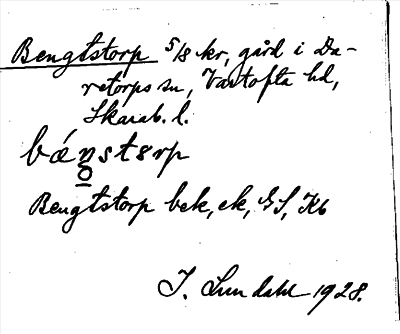 Bengtstorp 5/8 kr, gård i Da-
retorps sn, Vartofta hd,
Skarab. l.
bǽn̥stərp
Bengtstorp bek, ek, GS, Kb
I. Lundahl 1928.